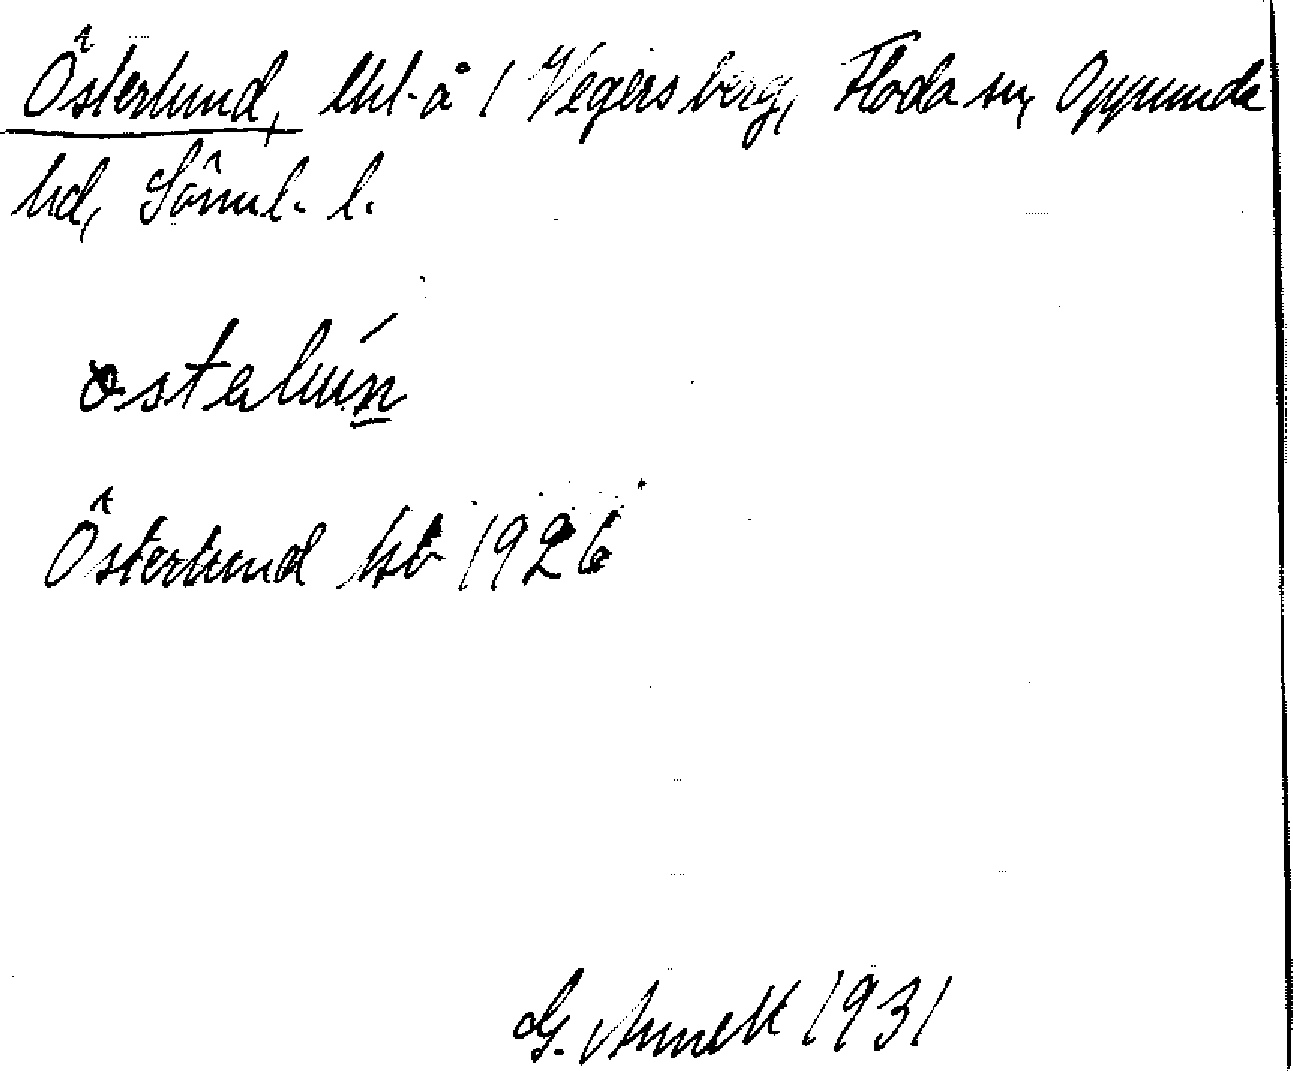 Österlund, lht-å 1 Vegersberg, Floda sn, Oppunda
hd, Sörml. l.
østeḷuńn̲
Österlund kb 1926
G. Arnell 1931